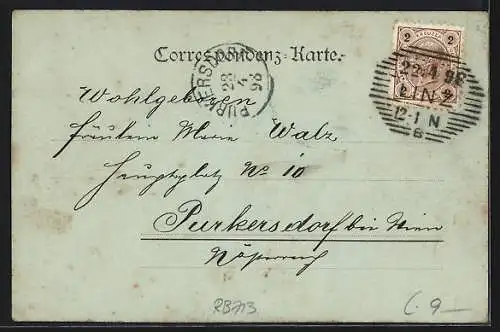 2 KREUZER 2
Correspondenz-Karte.
PURKERSDORF
23
4
98
22.4.98
LINZ
12-1 N
8
Wohlgeboren
Fräulein Marie Walz
Hauptplatz No 10
Purkersdorf bei Wien
N.österreich
RB713
(.9—